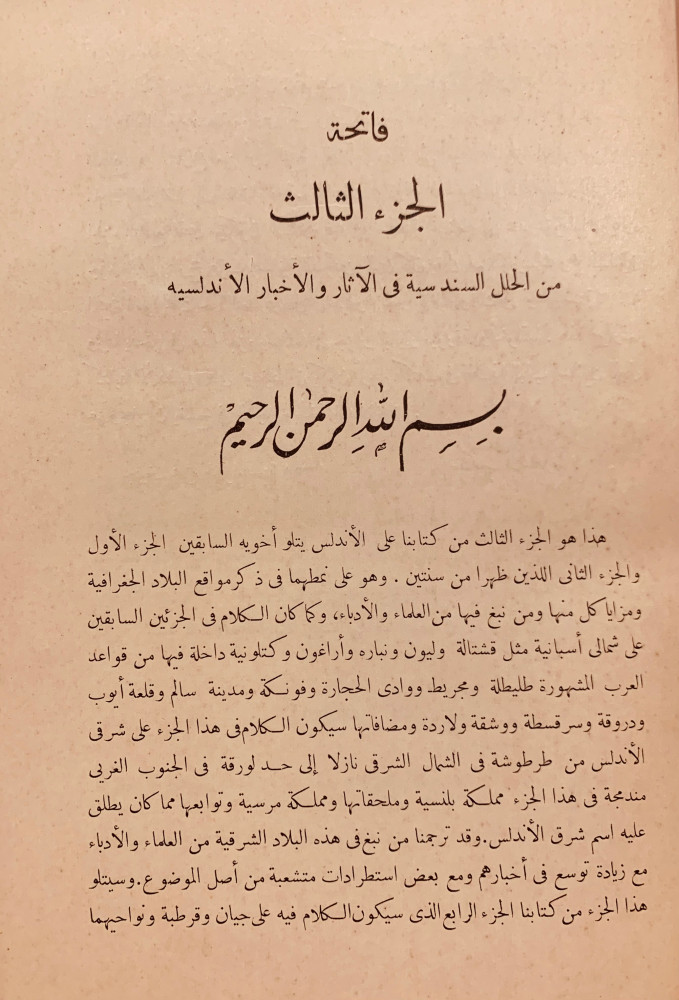 فاتحة
الجزء الثالث
من الحلل السندسية فى الآثار والأخبار الأندلسيه
بسم الله الرحمن الرحيم
هذا هو الجزء الثالث من كتابنا على الأندلس يتلو أخويه السابقين الجزء الأول
والجزء الثانى اللذين ظهرا من سنتين . وهو على نمطهما فى ذكر مواقع البلاد الجغرافية
ومزايا كل منها ومن نبغ فيها من العلماء والأدباء، وكما كان الكلام فى الجزئين السابقين
على شمالى أسبانية مثل قشتالة وليون ونباره وأراغون وكتلونية داخلة فيها من قواعد
العرب المشهورة طليطلة ومجريط ووادى الحجارة وفونكة ومدينة سالم وقلعة أيوب
ودروقة وسرقسطة ووشقة ولاردة ومضافاتها سيكون الكلام فى هذا الجزء على شرقى
الأندلس من طرطوشة فى الشمال الشرقى نازلا إلى حد لورقة فى الجنوب الغربى
مندمجة فى هذا الجزء مملكة بلنسية وملحقاتها ومملكة مرسية وتوابعها مما كان يطلق
عليه اسم شرق الأندلس. وقد ترجمنا من نبغ فى هذه البلاد الشرقية من العلماء والأدباء
مع زيادة توسع فى أخبارهم ومع بعض استطرادات متشعبة من أصل الموضوع. وسيتلو
هذا الجزء من كتابنا الجزء الرابع الذى سيكون الكلام فيه على جيان وقرطبة ونواحيهما